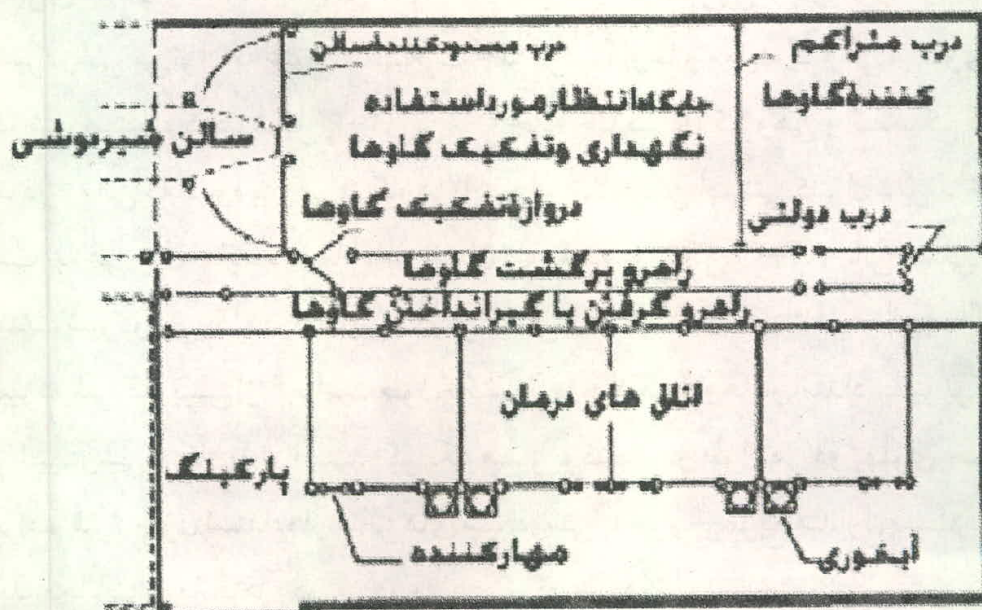 درب مسدودکننده سالن
درب متراکم
کنندهٔ گاوها
جایگاه انتظار مورد استفاده
نگهداری و تفکیک گاوها
سالن شیردوشی
دروازهٔ تفکیک گاوها
درب دولتی
راهرو برگشت گاوها
راهرو گرفتن با گیرانداختن گاوها
اتاق های درمان
پارکینگ
مهارکننده
آبخوری